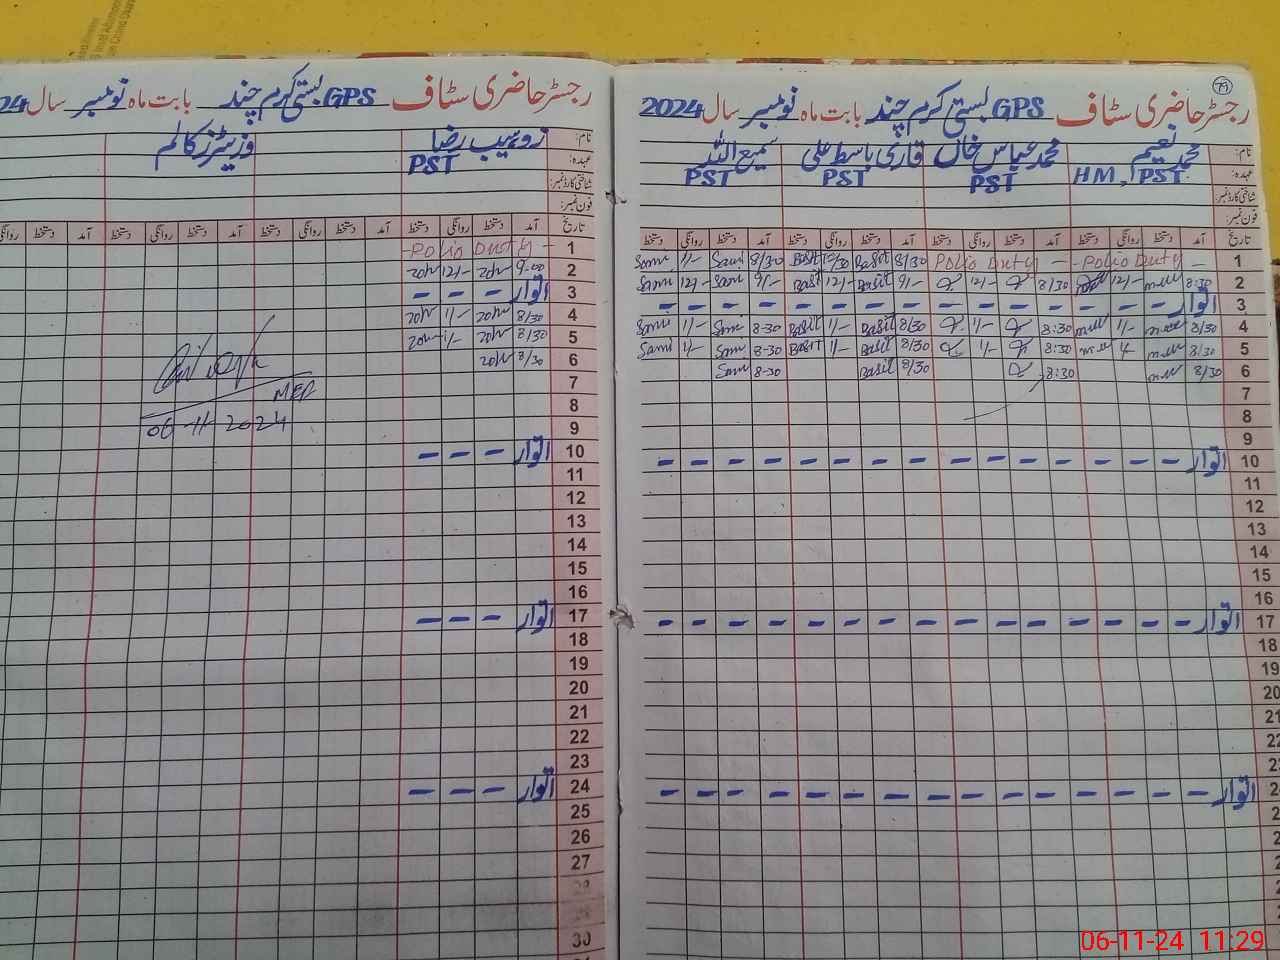 79
رجسٹر حاضری سٹاف GPS بستی کرم چند بابت ماہ نومبر سال 2024
نام: محمد نعیم محمد عباس خان قاری باسط علی سمیع اللہ
عہدہ: HM, PST PST PST PST
شناختی کارڈ نمبر:
فون نمبر:
تاریخ آمد دستخط روانگی دستخط آمد دستخط روانگی دستخط آمد دستخط روانگی دستخط آمد دستخط روانگی دستخط
1 - Polio Duty - Polio Duty - 8/30 Basit 12/30 Basit 8/30 Sami 1/- Sami
2 8:30 12/- 8/30 12/- 9/- Basit 12/- Basit 9/- Sami 12/- Sami
3 اتوار - - - - - - - - - - - - - - -
4 8/30 1/- 8:30 1/- 8/30 Basit 1/- Basit 8-30 Sami 1/- Sami
5 8/30 8:30 1/- 8/30 Basit 1/- Basit 8-30 Sami 1/- Sami
6 8/30 8:30 8/30 Basit 8-30 Sami
7
8
9
10 اتوار - - - - - - - - - - - - - - -
11
12
13
14
15
16
17 اتوار - - - - - - - - - - - - - - -
18
19
20
21
22
23
24 اتوار - - - - - - - - - - - - - - -
رجسٹر حاضری سٹاف GPS بستی کرم چند بابت ماہ نومبر سال 24
نام: زوہیب رضا وزیٹرز کالم
عہدہ: PST
شناختی کارڈ نمبر:
فون نمبر:
تاریخ آمد دستخط روانگی دستخط آمد دستخط روانگی دستخط آمد دستخط روانگی دستخط
1 - Polio Duty -
2 9-00 12/-
3 اتوار - - -
4 8/30 1/-
5 8/30 1/-
6 8/30
7
8
9
MEA
06-11-2024
10 اتوار - - -
11
12
13
14
15
16
17 اتوار - - -
18
19
20
21
22
23
24 اتوار - - -
25
26
27
28
29
30
06-11-24 11:29